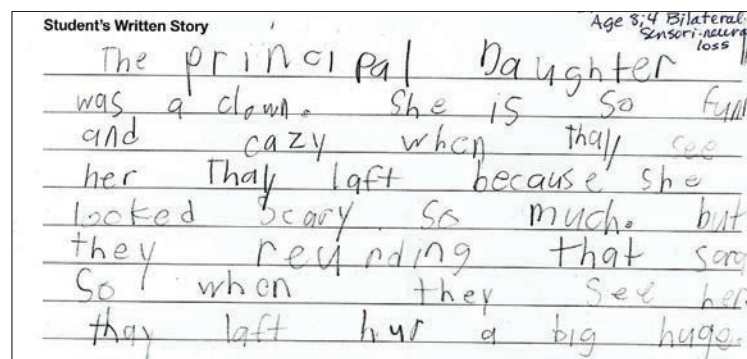 Student's Written Story
Age 8;4 Bilateral
Sensori-neura
loss
The principal Daughter
was a clown. She is so fun
and cazy when thay see
her Thay laft because she
looked scary so much. but
they reunding that sara
So when they see her
thay laft hur a big huge.